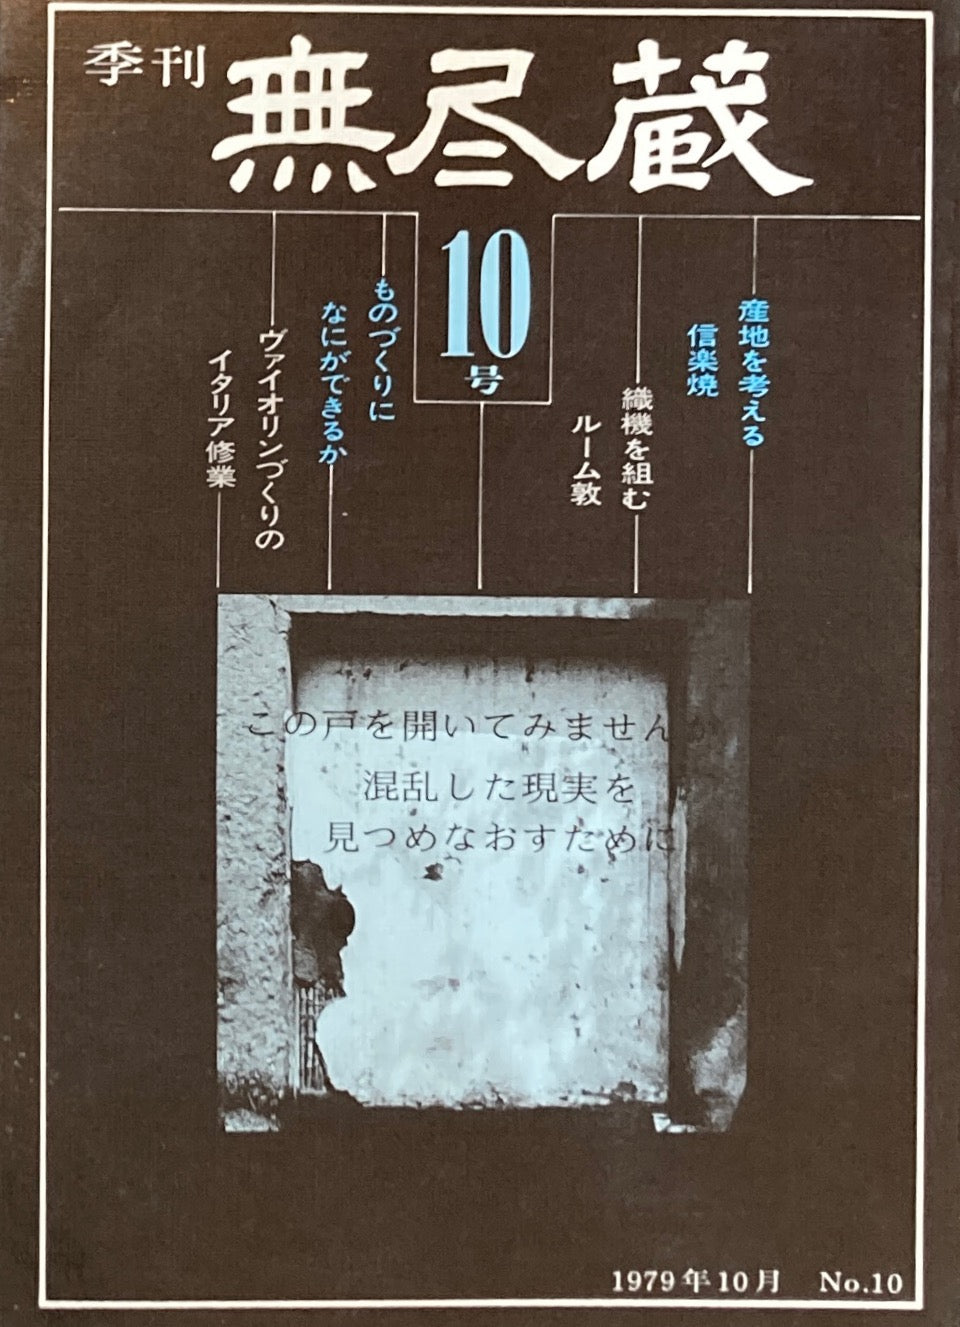 季刊
無尽蔵
10
号
産地を考える
信楽焼
織機を組む
ルーム敦
ものづくりに
なにができるか
ヴァイオリンづくりの
イタリア修業
この戸を開いてみませんか
混乱した現実を
見つめなおすために
1979年10月 No.10